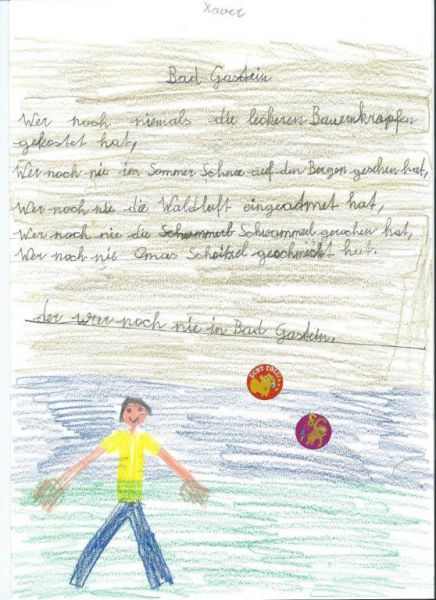 Xaver
Bad Gastein
Wer noch niemals die leckeren Bauernkrapfen
gekostet hat,
Wer noch nie im Sommer Schnee auf den Bergen gesehen hat,
Wer noch nie die Waldluft eingeadmet hat,
Wer noch nie die Schwammerl gerochen hat,
Wer noch nie Omas geschmeckt hat.
der war noch nie in Bad Gastein.
ECHT TOLL!